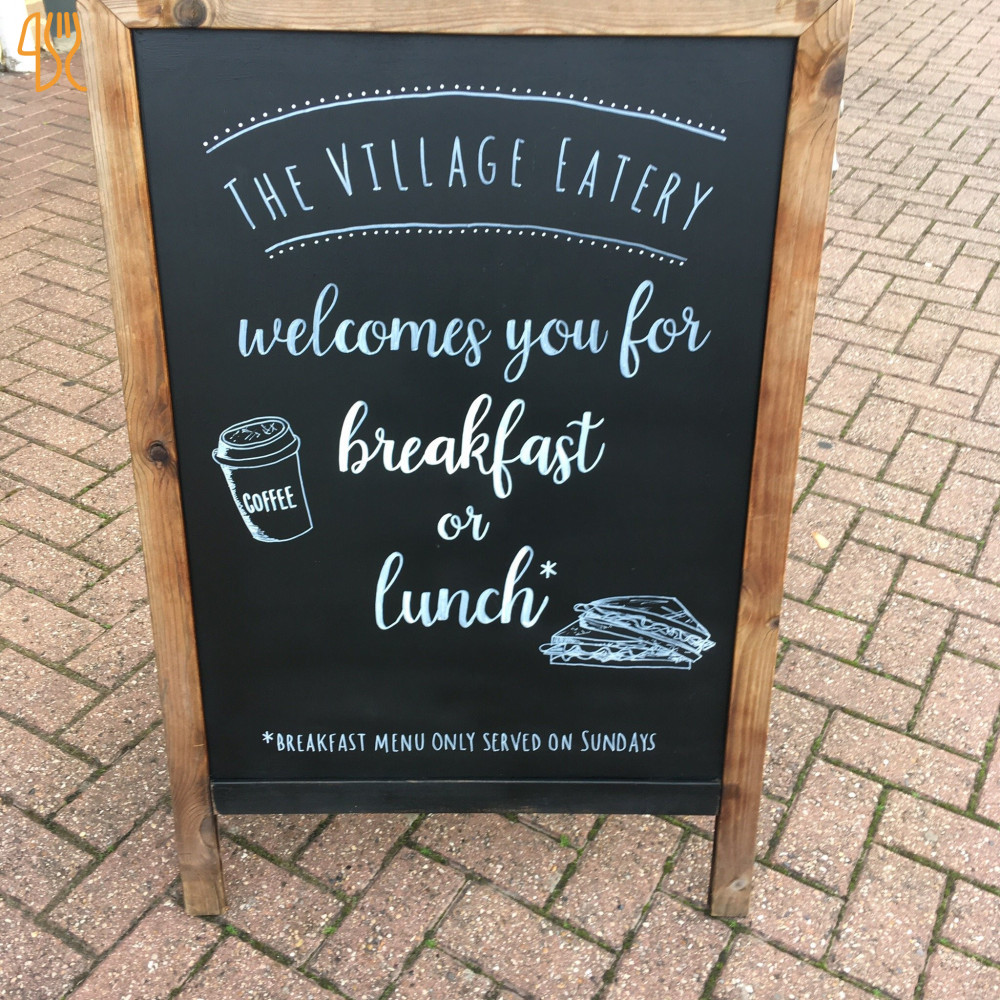 THE VILLAGE EATERY
welcomes you for
breakfast
COFFEE
or
lunch*
*BREAKFAST MENU ONLY SERVED ON SUNDAYS